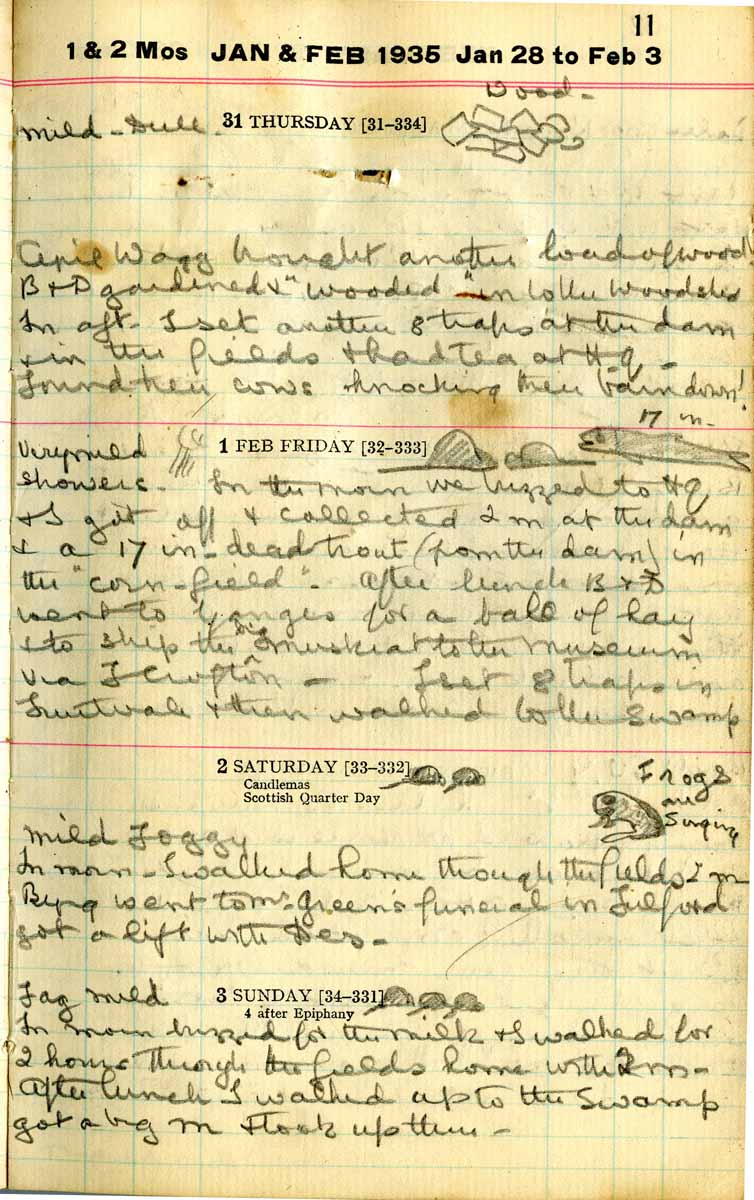 11
1 & 2 Mos JAN & FEB 1935 Jan 28 to Feb 3
Wood -
Mild - Dull - 31 THURSDAY [31–334]
Wagg brought another load of wood
B & D gardened & "wooded" in to the woodshed
In aft - I set another 8 traps at the dam
& in the fields & had tea at HQ -
Found their cows knocking their barn down!
17 in -
Very mild 1 FEB FRIDAY [32–333]
showers - In the morn we buzzed to HQ
& I got off & collected 2 m at the dam
& a 17 in - dead trout (from the dam) in
the "corn-field" - After lunch B & D
went to for a bale of hay
& to ship the big muskrat to the museum
via F Crofton - I set 8 traps in
Fruitvale & then walked to the Swamp
2 SATURDAY [33–332]
Candlemas
Scottish Quarter Day
Frogs
are
Singing
Mild Foggy
In morn - I walked home through the fields 2 m
Byng went to Mrs. Green's funeral in Fulford
got a lift with Des -
Fog mild 3 SUNDAY [34–331]
4 after Epiphany
In morn buzzed for the milk & I walked for
2 hours through the fields home with 2 m -
After lunch I walked up to the Swamp
got a big m & took up there -